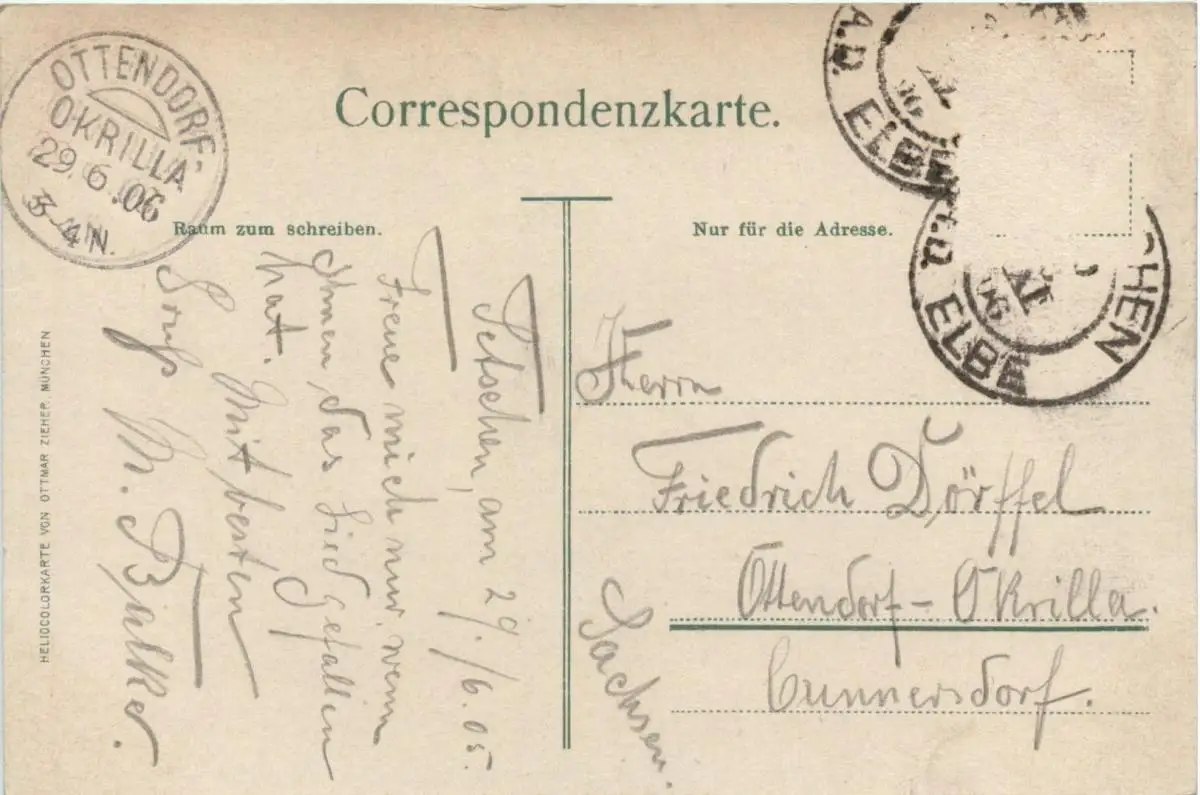 OTTENDORF-
OKRILLA
29.6.06
3-4N.
Correspondenzkarte.
A.D. ELBE
06
Raum zum schreiben.
Nur für die Adresse.
CHEN
A.D. ELBE
XI
06
Tetschen, am 29./6.05.
Freue mich nur, wenn
Ihnen das Lied gefallen
hat.
Mit besten
Gruß
M.
Herrn
Friedrich Dörffel
Ottendorf-Okrilla.
Cunnersdorf.
Sachsen.
HELIOCOLORKARTE VON OTTMAR ZIEHER, MÜNCHEN